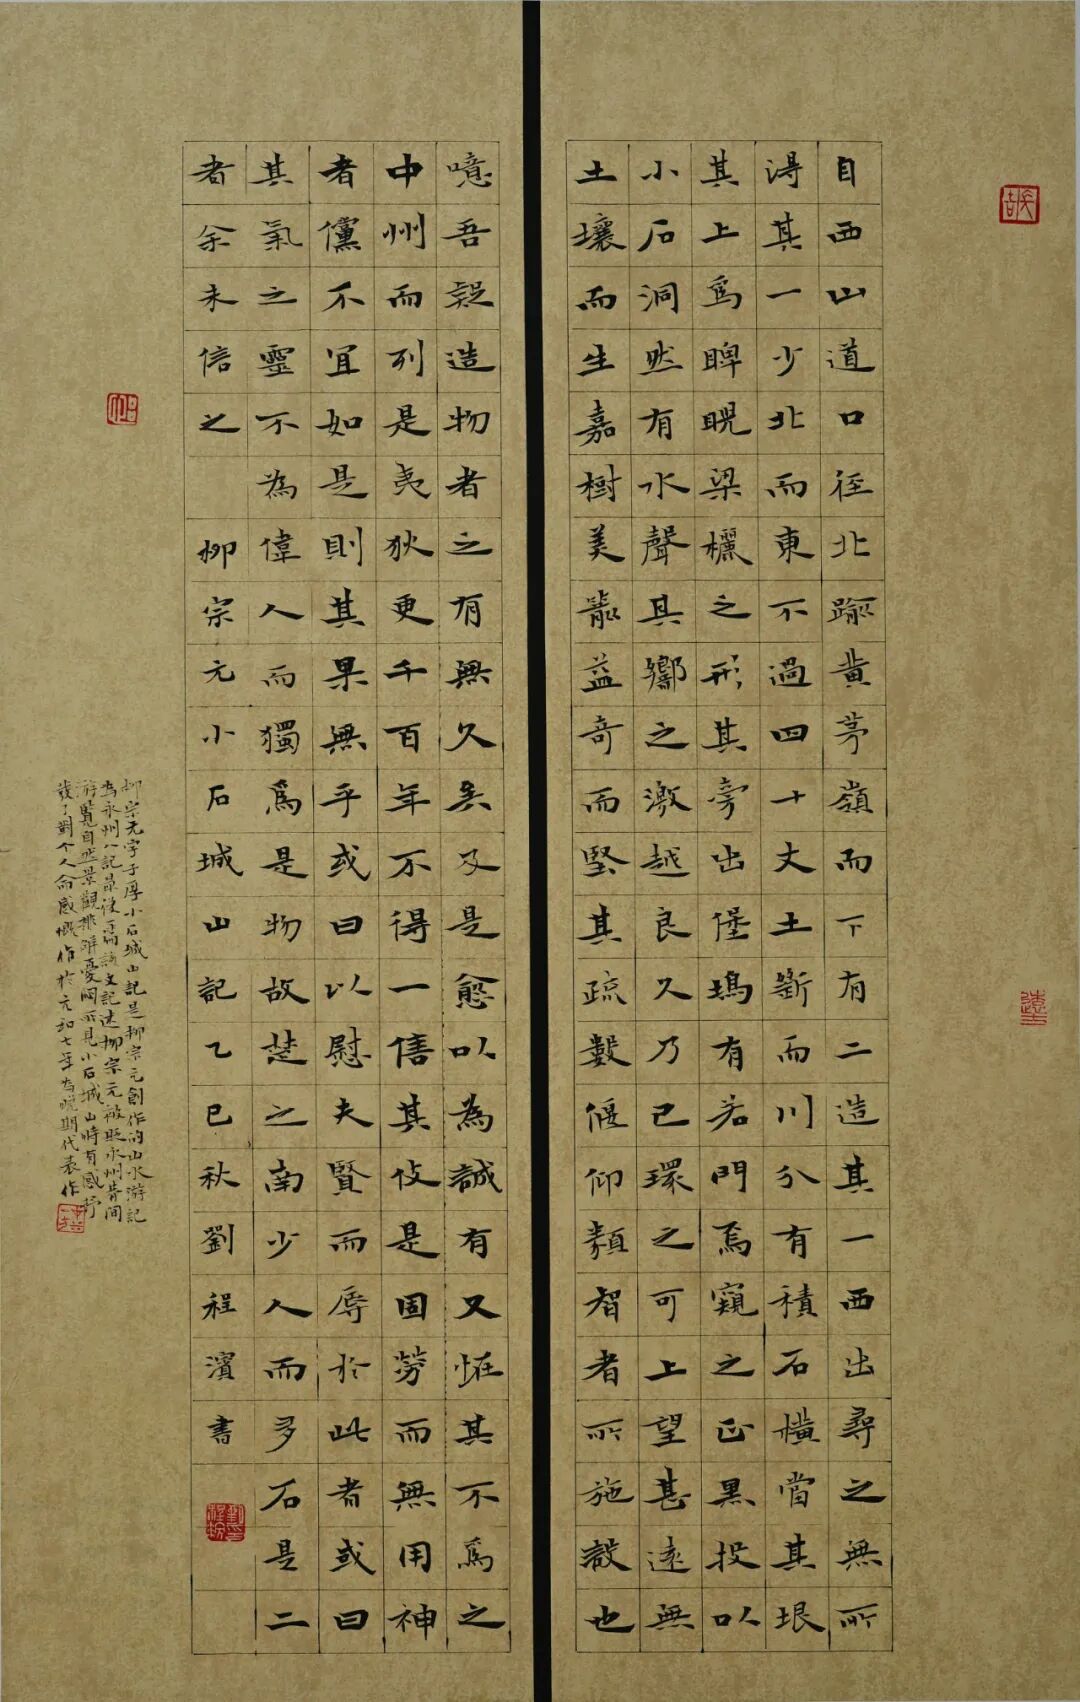 自西山道口徑北踰黄茅嶺而下有二造其一西出尋之無所
得其一少北而東不過四十丈土斷而川分有積石橫當其垠
其上爲睥睨梁欐之形其旁出堡塢有若門焉窺之正黑投以
小石洞然有水聲其響之激越良久乃已環之可上望甚遠無
土壤而生嘉樹美箭益奇而堅其疏數偃仰類智者所施設也
噫吾疑造物者之有無久矣及是愈以為誠有又怪其不爲之
中州而列是夷狄更千百年不得一售其伎是固勞而無用神
者儻不宜如是則其果無乎或曰以慰夫賢而辱於此者或曰
其氣之靈不為偉人而獨爲是物故楚之南少人而多石是二
者余未信之 柳宗元小石城山記乙巳秋劉程濱書
柳宗元字子厚小石城山記是柳宗元創作的山水游記
为永州八記最後一篇該文記述柳宗元被貶永州間
游覽自然景觀排解憂悶所見小石城山時有感抒
發了對个人命感慨作於元和七年为晚期代表作